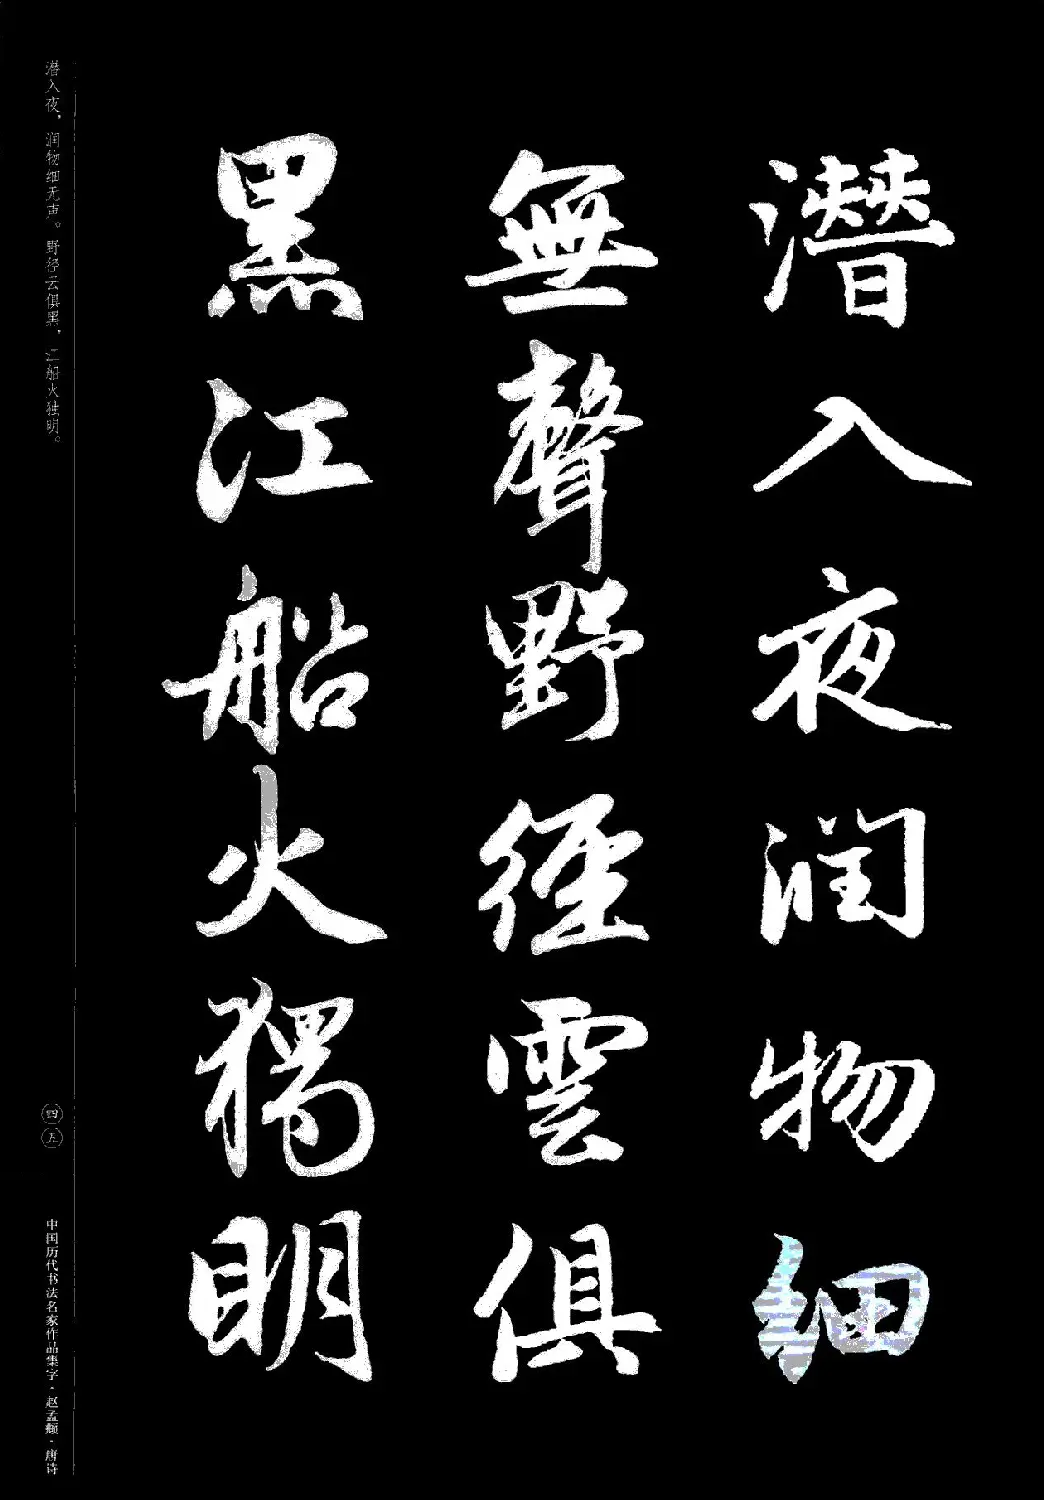 潛入夜润物细
無聲野徑雲俱
黑江船火獨明
潜入夜，润物细无声。野径云俱黑，江船火独明。
四五
中国历代书法名家作品集字·赵孟頫·唐诗